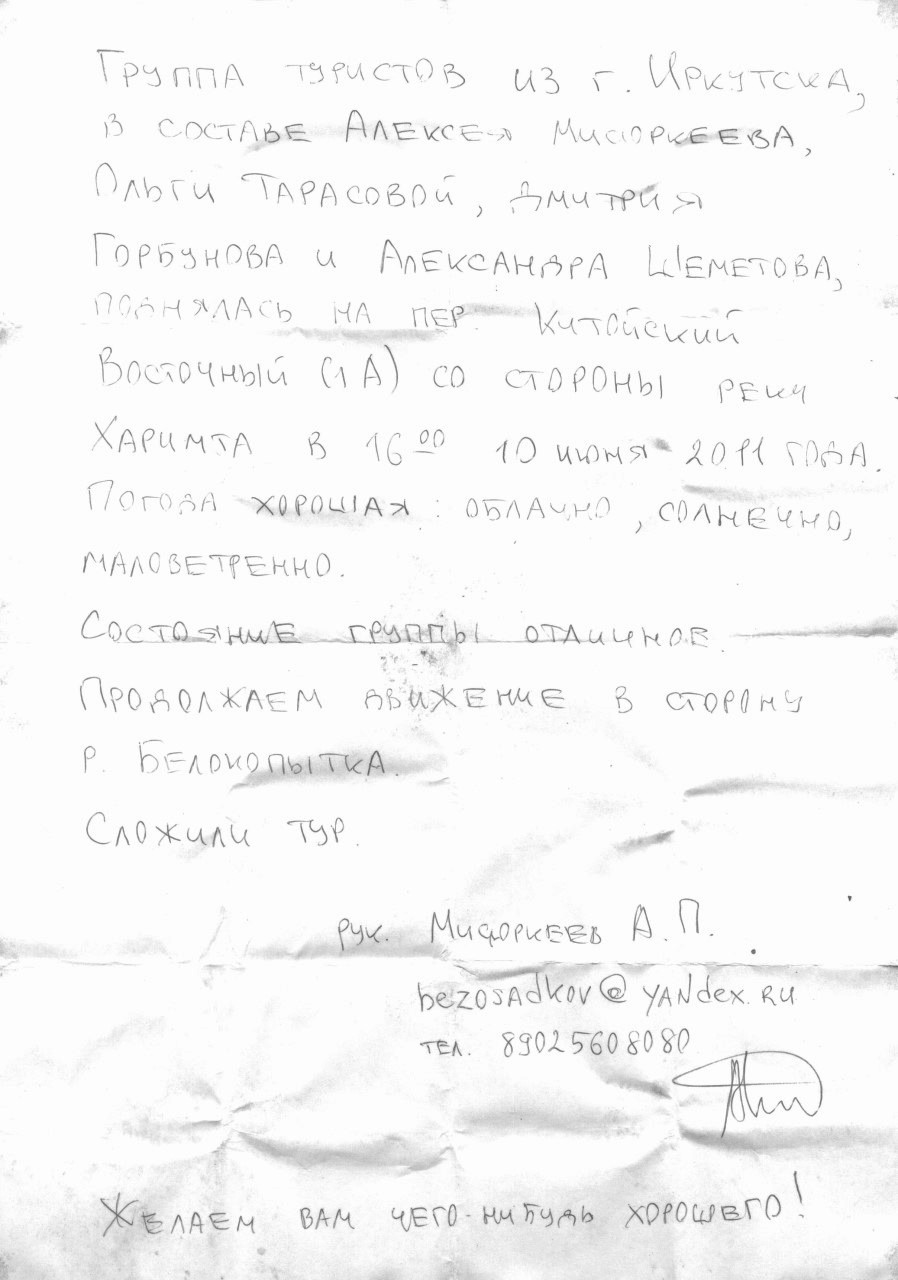 Группа туристов из г. Иркутска,
в составе Алексея Мисюркеева,
Ольги Тарасовой, Дмитрия
Горбунова и Александра Шеметова,
поднялась на пер. Китойский
Восточный (1А) со стороны реки
Харимта в 16 00 10 июня 2011 года.
Погода хорошая: облачно, солнечно,
маловетренно.
Состояние группы отличное.
Продолжаем движение в сторону
р. Белокопытка.
Сложили тур.
рук. Мисюркеев А.П.
bezosadkov@yandex.ru
тел. 89025608080
Желаем вам чего-нибудь хорошего!